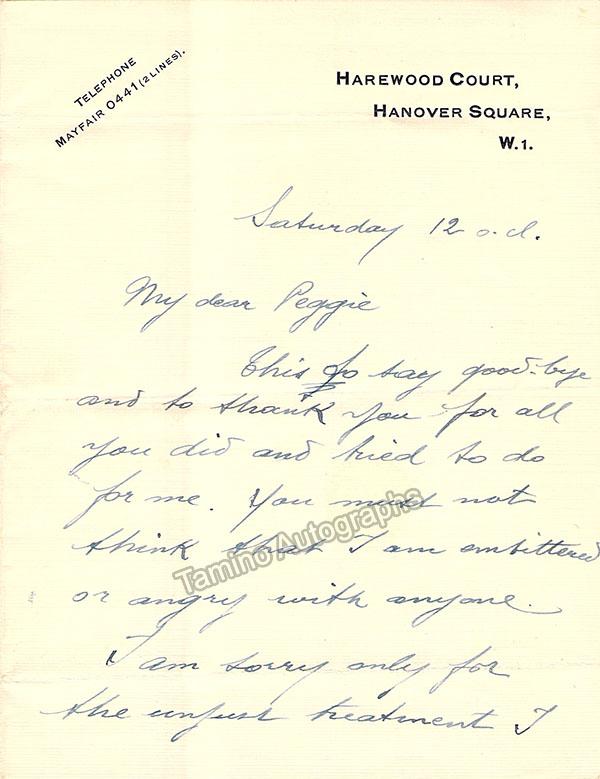 TELEPHONE
MAYFAIR 0441 (2 LINES).
HAREWOOD COURT,
HANOVER SQUARE,
W.1.
Saturday 12 o.cl.
My dear Peggie
This to say good-bye
and to thank you for all
you did and tried to do
for me. You must not
think that I am embittered
or angry with anyone.
I am sorry only for
the unjust treatment I
Tamino Autographs